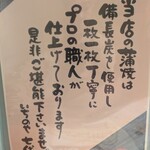 当店の蒲焼は
備長炭を使用し
一枚一枚丁寧に
プロの職人が
仕上げております
是非ご堪能下さいませ